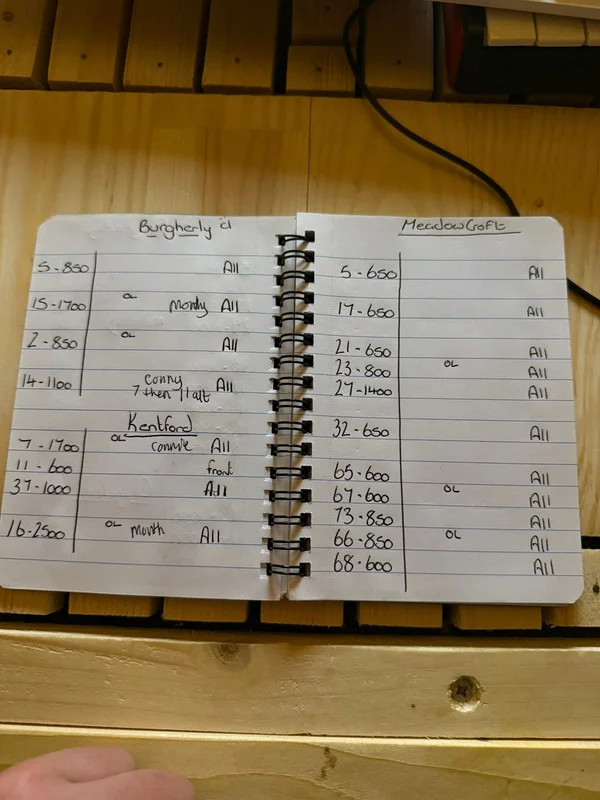 Burgherly cl
5-850 All
15-1700 OL monthly All
2-850 OL All
14-1100 conny All
7 then 1 alt
Kentford
7-1700 OL connie All
11-600 front
37-1000 All
16-2500 OL mouth All
MeadowCroft
5-650 All
17-650 All
21-650 All
23-800 OL All
27-1400 All
32-650 All
65-600 All
67-600 OL All
73-850 All
66-850 OL All
68-600 All